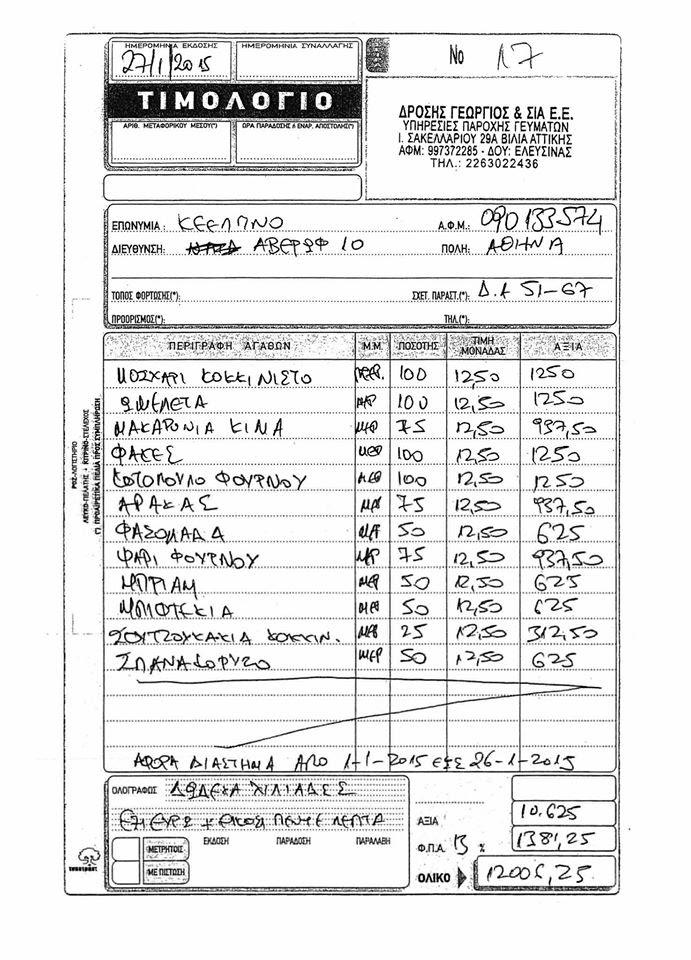 ΗΜΕΡΟΜΗΝΙΑ ΕΚΔΟΣΗΣ ΗΜΕΡΟΜΗΝΙΑ ΣΥΝΑΛΛΑΓΗΣ
27/1/2015
Νο 17
ΤΙΜΟΛΟΓΙΟ
ΑΡΙΘ. ΜΕΤΑΦΟΡΙΚΟΥ ΜΕΣΟΥ(*) ΩΡΑ ΠΑΡΑΔΟΣΗΣ ή ΕΝΑΡ. ΑΠΟΣΤΟΛΗΣ(*)
ΔΡΟΣΗΣ ΓΕΩΡΓΙΟΣ & ΣΙΑ Ε.Ε.
ΥΠΗΡΕΣΙΕΣ ΠΑΡΟΧΗΣ ΓΕΥΜΑΤΩΝ
Ι. ΣΑΚΕΛΛΑΡΙΟΥ 29Α ΒΙΛΙΑ ΑΤΤΙΚΗΣ
ΑΦΜ: 997372285 - ΔΟΥ: ΕΛΕΥΣΙΝΑΣ
ΤΗΛ.: 2263022436
ΕΠΩΝΥΜΙΑ: ΚΕΕΛΠΝΟ Α.Φ.Μ.: 090133574
ΔΙΕΥΘΥΝΣΗ: ΑΒΕΡΩΦ 10 ΠΟΛΗ: ΑΘΗΝΑ
ΤΟΠΟΣ ΦΟΡΤΩΣΗΣ(*): ΣΧΕΤ. ΠΑΡΑΣΤ.(*): Δ.Α 51-67
ΠΡΟΟΡΙΣΜΟΣ(*): ΤΗΛ.(*):
ΠΕΡΙΓΡΑΦΗ ΑΓΑΘΩΝ Μ.Μ. ΠΟΣΟΤΗΣ ΤΙΜΗ ΜΟΝΑΔΑΣ ΑΞΙΑ
ΜΟΣΧΑΡΙ ΚΟΚΚΙΝΙΣΤΟ ΜΕΡ. 100 12,50 1250
ΟΜΕΛΕΤΑ ΜΕΡ 100 12,50 1250
ΜΑΚΑΡΟΝΙΑ ΚΙΜΑ ΜΕΡ 75 12,50 937,50
ΦΑΚΕΣ ΜΕΡ 100 12,50 1250
ΚΟΤΟΠΟΥΛΟ ΦΟΥΡΝΟΥ ΜΕΡ 100 12,50 1250
ΑΡΑΚΑΣ ΜΕΡ 75 12,50 937,50
ΦΑΣΟΛΑΔΑ ΜΕΡ 50 12,50 625
ΨΑΡΙ ΦΟΥΡΝΟΥ ΜΕΡ 75 12,50 937,50
ΜΠΡΙΑΜ ΜΕΡ 50 12,50 625
ΜΠΙΦΤΕΚΙΑ ΜΕΡ 50 12,50 625
ΣΟΥΤΖΟΥΚΑΚΙΑ ΚΟΚΚΙΝ. ΜΕΡ 25 12,50 312,50
ΣΠΑΝΑΚΟΡΥΖΟ ΜΕΡ 50 12,50 625
ΑΦΟΡΑ ΔΙΑΣΤΗΜΑ ΑΠΟ 1-1-2015 ΕΩΣ 26-1-2015
ΟΛΟΓΡΑΦΩΣ ΔΩΔΕΚΑ ΧΙΛΙΑΔΕΣ
ΕΞΙ ΕΥΡΩ + ΕΙΚΟΣΙ ΠΕΝΤΕ ΛΕΠΤΑ
ΑΞΙΑ 10.625
Φ.Π.Α. 13 % 1381,25
ΟΛΙΚΟ 12006,25
ΜΕΤΡΗΤΟΙΣ ΕΚΔΟΣΗ ΠΑΡΑΔΟΣΗ ΠΑΡΑΛΑΒΗ
ΜΕ ΠΙΣΤΩΣΗ
typotrust